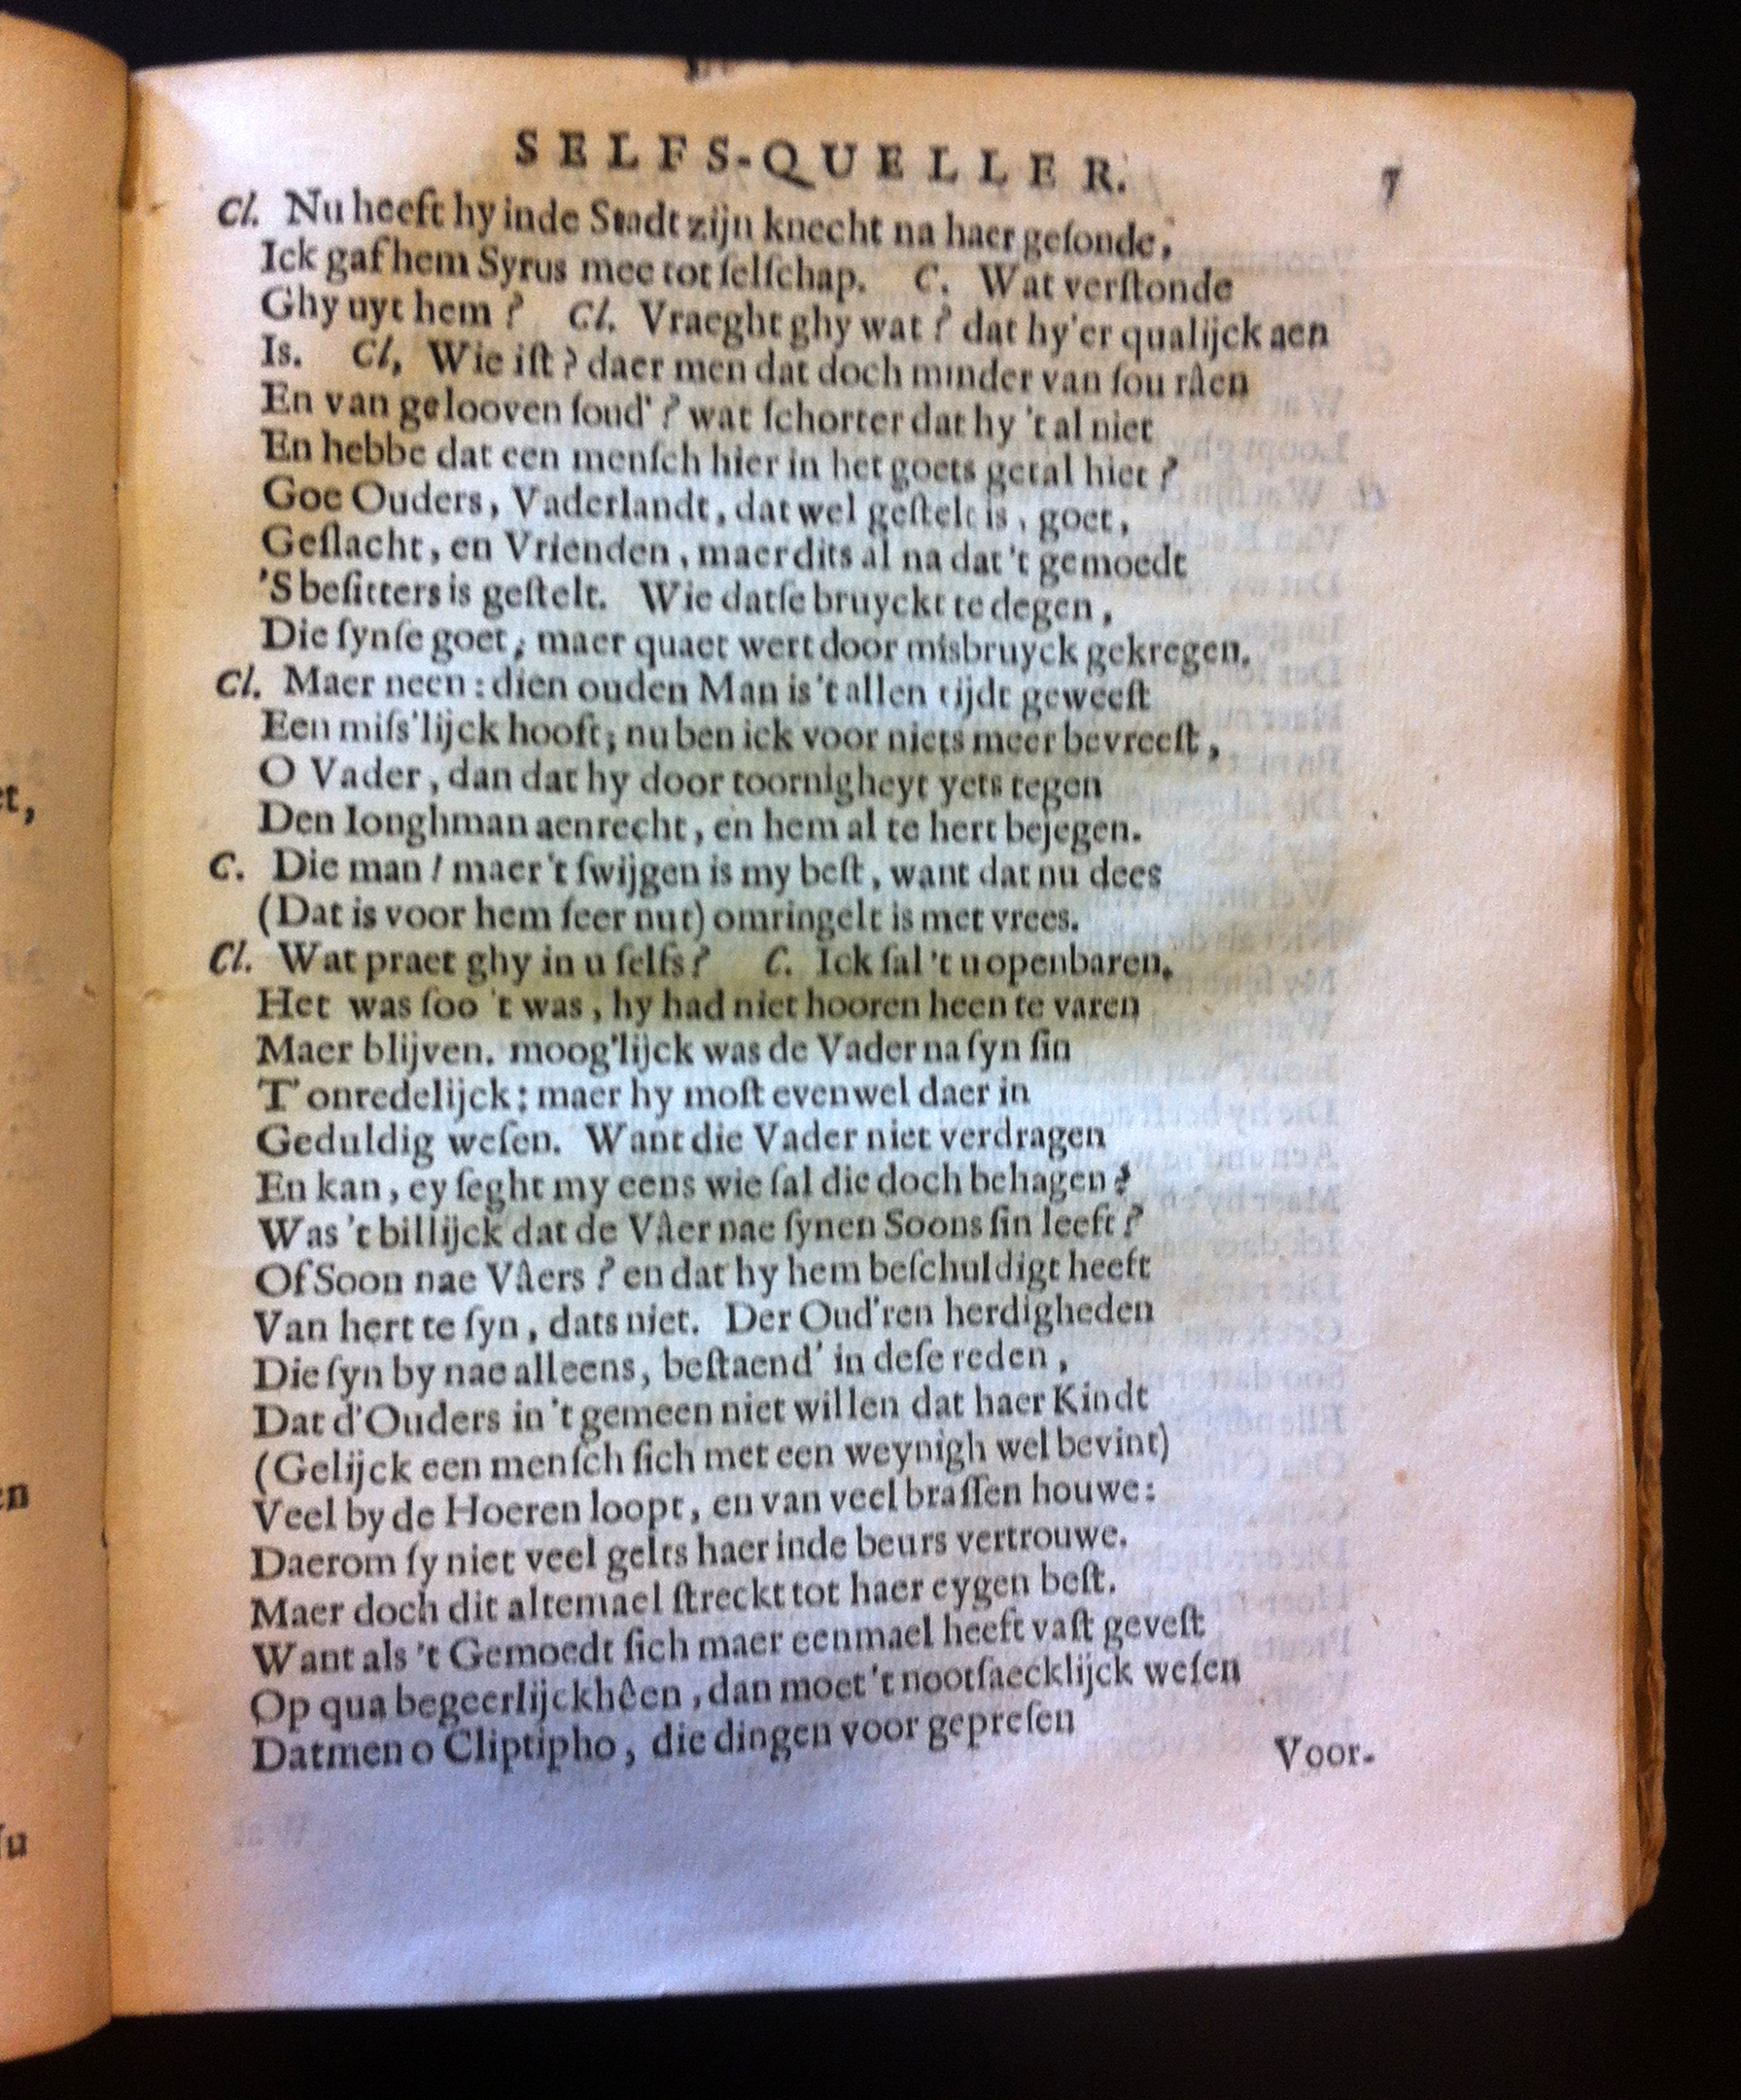 SELFS-QUELLER. 7
Cl. Nu heeft hy inde Stadt zijn knecht na haer geſonde,
Ick gaf hem Syrus mee tot ſelſchap. C. Wat verſtonde
Ghy uyt hem? Cl. Vraeght ghy wat? dat hy'er qualijck aen
Is. Cl, Wie iſt? daer men dat doch minder van ſou râen
En van gelooven ſoud'? wat ſchorter dat hy 't al niet
En hebbe dat een menſch hier in het goets getal hiet?
Goe Ouders, Vaderlandt, dat wel geſtelt is, goet,
Geſlacht, en Vrienden, maer dits al na dat 't gemoedt
'S beſitters is geſtelt. Wie datſe bruyckt te degen,
Die ſynſe goet; maer quaet wert door misbruyck gekregen.
Cl. Maer neen: dien ouden Man is 't allen tijdt geweeſt
Een miſs'lijck hooft; nu ben ick voor niets meer bevreeſt,
O Vader, dan dat hy door toornigheyt yets tegen
Den Ionghman aenrecht, en hem al te hert bejegen.
C. Die man! maer 't ſwijgen is my beſt, want dat nu dees
(Dat is voor hem ſeer nut) omringelt is met vrees.
Cl. Wat praet ghy in u ſelfs? C. Ick ſal 't u openbaren.
Het was ſoo 't was, hy had niet hooren heen te varen
Maer blijven. moog'lijck was de Vader na ſyn ſin
T' onredelijck; maer hy moſt evenwel daer in
Geduldig weſen. Want die Vader niet verdragen
En kan, ey ſeght my eens wie ſal die doch behagen?
Was 't billijck dat de Vâer nae ſynen Soons ſin leeft?
Of Soon nae Vâers? en dat hy hem beſchuldigt heeft
Van hert te ſyn, dats niet. Der Oud'ren herdigheden
Die ſyn by nae alleens, beſtaend' in deſe reden,
Dat d'Ouders in 't gemeen niet willen dat haer Kindt
(Gelijck een menſch ſich met een weynigh wel bevint)
Veel by de Hoeren loopt, en van veel braſſen houwe:
Daerom ſy niet veel gelts haer inde beurs vertrouwe.
Maer doch dit altemael ſtreckt tot haer eygen beſt.
Want als 't Gemoedt ſich maer eenmael heeft vaſt geveſt
Op qua begeerlijckhêen, dan moet 't nootſaecklijck weſen
Datmen o Cliptipho, die dingen voor gepreſen
Voor-